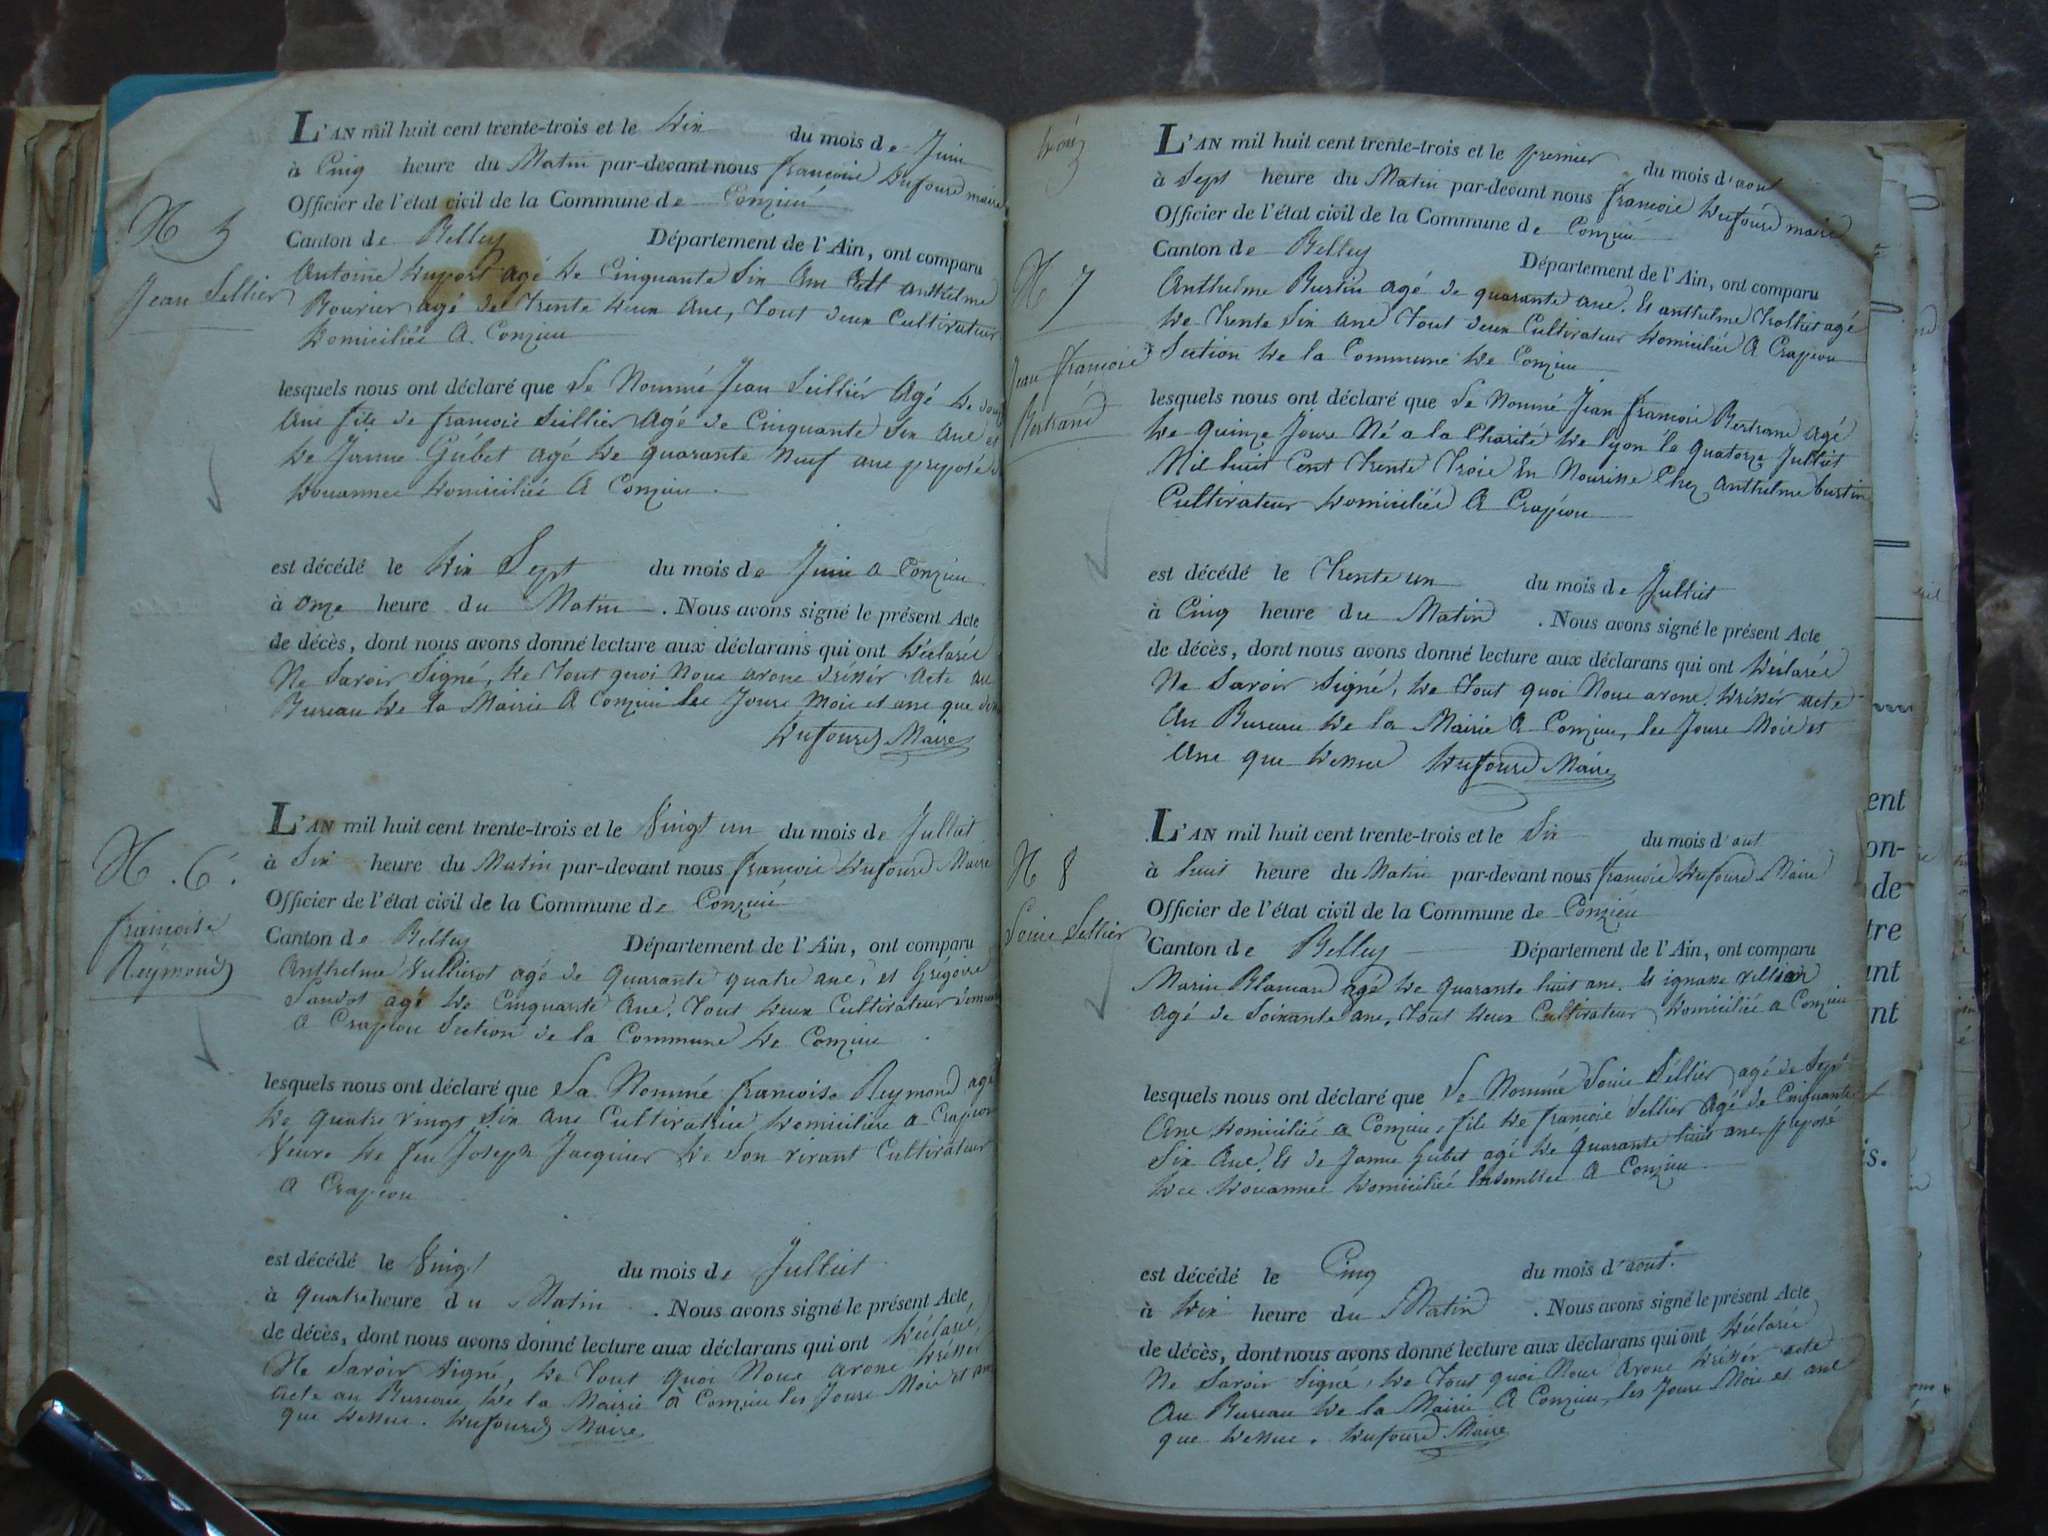 L'AN mil huit cent trente-trois et le Dix du mois de Juin
à Cinq heure du Matin par-devant nous françois Dufourd maire
Officier de l'état civil de la Commune de Conzieu
N 5
Canton de Belley Département de l'Ain, ont comparu
Jean Sellier
Antoine Duport agé de Cinquante Six ans Ett anthelme
Bourier agé de Trente Deux ans, Tout deux Cultivateur
Domiciliés A Conzieu
lesquels nous ont déclaré que Le Nommé Jean Seillier Agé de
ans fils de françois Seillier Agé de Cinquante Six ans et
De Janne Gubet agé De quarante Neuf ans preposé
Douannes Domiciliés A Conzieu.
est décédé le Dix Sept du mois de Juin a Conzieu
à onze heure du Matin. Nous avons signé le présent Acte
de décès, dont nous avons donné lecture aux déclarans qui ont Déclarés
Ne Savoir Signé, De Tout quoi Nous avons dréssér Acte au
Bureau De la Mairie A Conzieu les Jours Mois et ans que
Dufourd Maire
L'AN mil huit cent trente-trois et le Vingt un du mois de Julliet
N. 6.
à Six heure du Matin par-devant nous françois Dufourd Maire
Officier de l'état civil de la Commune de Conzieu
françoise
Reymond
Canton de Belley Département de l'Ain, ont comparu
Anthelme Vullierot agé de quarante quatre ans, et Grégoire
agé De Cinquante Ans, Tout Deux Cultivateur
A Crapeou Section de la Commune De Conzieu
lesquels nous ont déclaré que La Nommé françoise Reymond agé
De quatre vingt Six ans Cultivatrice Domiciliée a Crapeou
Veuve De feu Joseph Jacquier De Son vivant Cultivateur
A Crapeou
est décédé le Vingt du mois de Julliet
à quatre heure du Matin. Nous avons signé le présent Acte
de décès, dont nous avons donné lecture aux déclarans qui ont Déclarés,
Ne Savoir Signé, De Tout quoi Nous avons Dréssér
acte au Bureau De la Mairie à Conzieu les Jours Mois et ans
que Dessus. Dufourd Maire
L'AN mil huit cent trente-trois et le premier du mois d'aout
à Sept heure du Matin par-devant nous françois Dufourd maire
Officier de l'état civil de la Commune de Conzieu
N 7
Canton de Belley Département de l'Ain, ont comparu
Anthelme Bustin agé de quarante ans. Et anthelme Trolliet agé
De Trente Six ans Tout deux Cultivateur Domiciliés A Crapeou
Jean françois
Bertrand
Section De la Commune De Conzieu
lesquels nous ont déclaré que Le Nommé Jean françois Bertrand agé
De quinze Jours Né a la Charité De lyon le quatorze Julliet
Mil huit Cent Trente Trois En Nourisse Chez Anthelme bustin
Cultivateur Domiciliés A Crapeou
est décédé le Trente un du mois de Julliet
à Cinq heure du Matin. Nous avons signé le présent Acte
de décès, dont nous avons donné lecture aux déclarans qui ont Déclarés
Ne Savoir Signé, De Tout quoi Nous avons Dréssér acte
Au Bureau De la Mairie A Conzieu, les Jours Mois et
Ans que Dessus Dufourd Maire
L'AN mil huit cent trente-trois et le Six du mois d'aut
N 8
à huit heure du Matin par-devant nous françois Dufourd Maire
Officier de l'état civil de la Commune de Conzieu
Louis Sellier
Canton de Belley Département de l'Ain, ont comparu
Marin Blancard agé De quarante huit ans. Et ignasse
Agé de Soixante ans, Tout Deux Cultivateur Domiciliés a Conzieu
lesquels nous ont déclaré que Le Nommé Louis Séllier agé de Sept
Ans Domiciliés a Conzieu, fils De françois Sellier Agé de Cinquante
Six Ans, Et de Janne Gubet agé De quarante huit ans preposé
Des Douannes Domiciliés Ensembles A Conzieu
est décédé le Cinq du mois d'aout.
à Dix heure du Matin. Nous avons signé le présent Acte
de décès, dont nous avons donné lecture aux déclarans qui ont Déclarés
Ne Savoir Signé, De Tout quoi Nous Avons Dréssér acte
Au Bureau De la Mairie A Conzieu, les Jours Mois et ans
que Dessus. Dufourd Maire